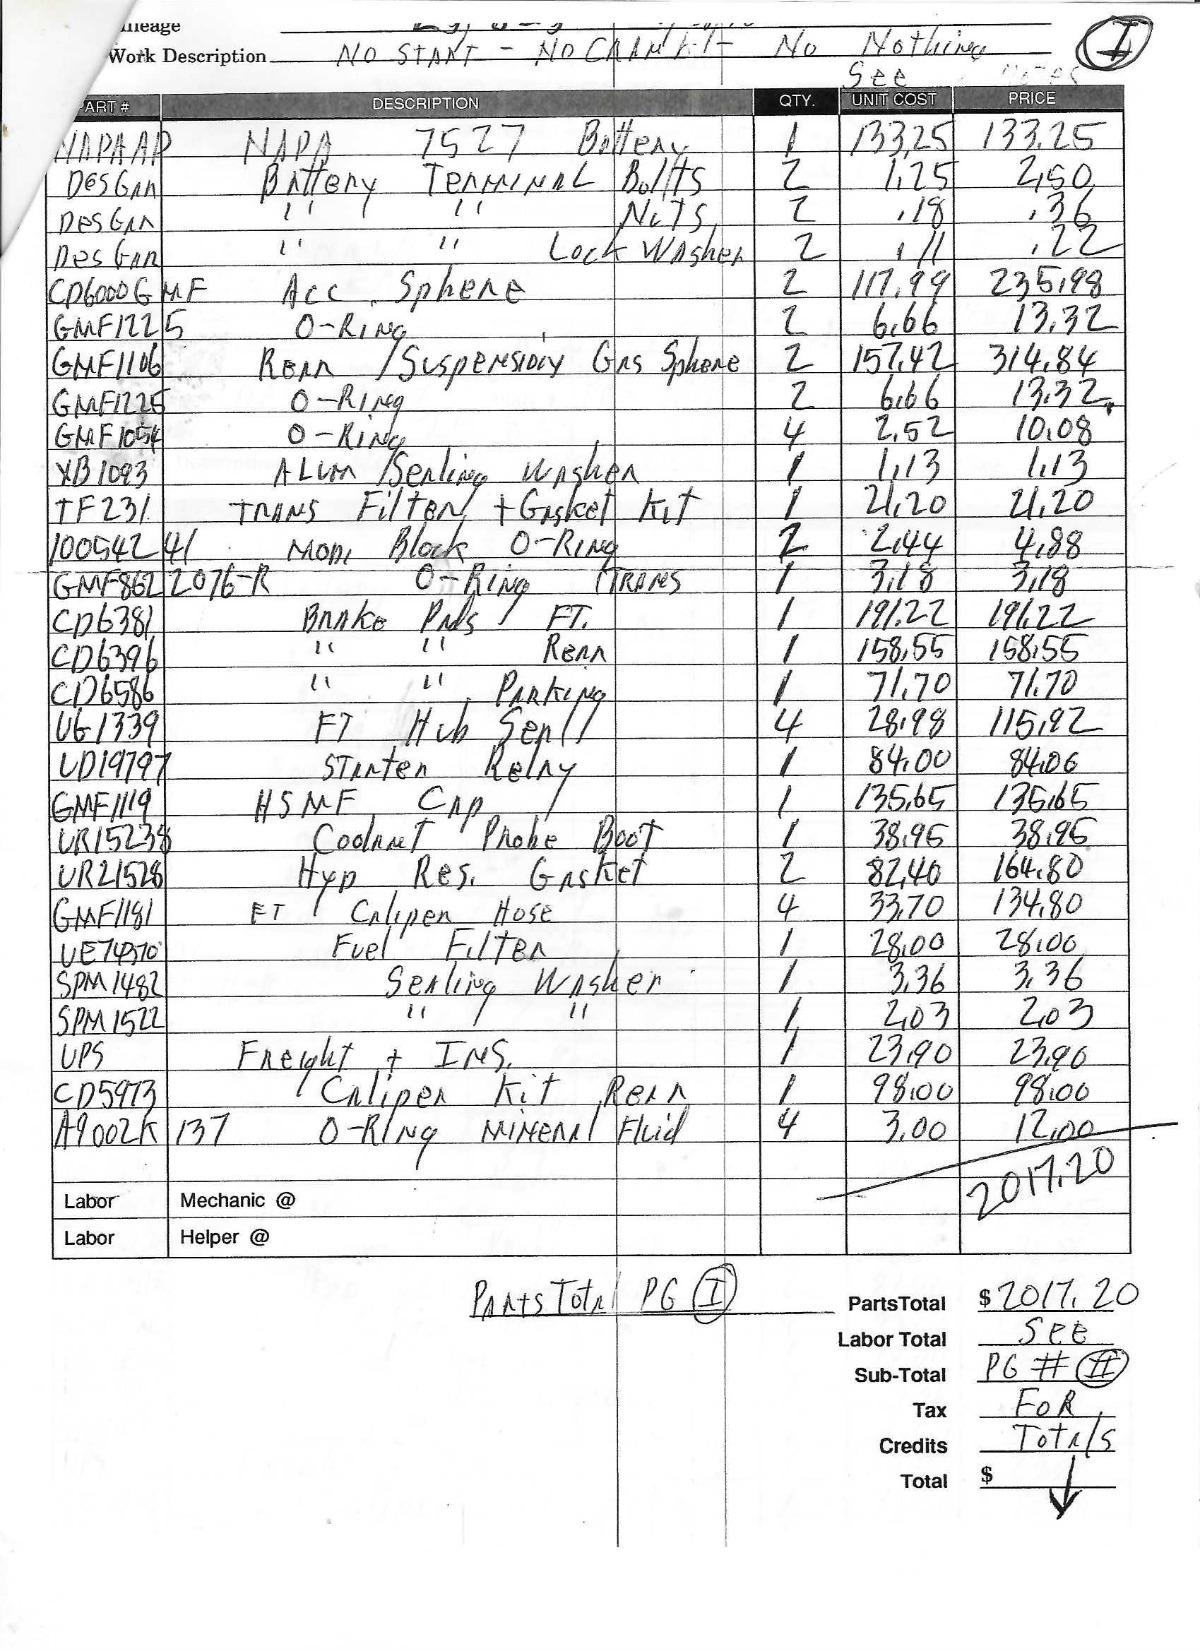 Mileage
Work Description NO START - NO CRANK - No Nothing
I
See Notes
PART # DESCRIPTION QTY. UNIT COST PRICE
NAPAAP NAPA 7527 Battery 1 133,25 133,25
Des Gan Battery Terminal Bollts 2 1,25 2,50
Des Gan " " Nuts 2 .18 .36
Des Gan " " Lock Washer 2 .11 .22
CD6000GMF Acc. Sphere 2 117.99 235,98
GMF1225 O-Ring 2 6,66 13,32
GMF1106 Rear /Suspension Gas Sphere 2 157,42 314,84
GMF1225 O-Ring 2 6,66 13,32
GMF1054 O-Ring 4 2,52 10,08
YB1093 ALUM /Sealing Washer 1 1,13 1,13
TF231 TRANS Filter + Gasket Kit 1 21,20 21,20
10054241 Block O-Ring 2 2,44 4,88
GMF8622076-R O-Ring TRANS 1 3,18 3,18
CD6381 Brake Pads FT. 1 191,22 191,22
CD6396 " " Rear 1 158,55 158,55
CD6586 " " Parking 1 71,70 71,70
UG1339 FT Hub Seal 4 28,98 115,92
UD19797 Starter Relay 1 84,00 84,00
GMF1119 HSMF Cap 1 135,65 135,65
UR15238 Coolant Probe Boot 1 38,95 38,95
UR21528 Hyp Res. Gasket 2 82,40 164,80
GMF1181 FT Caliper Hose 4 33,70 134,80
UE74370 Fuel Filter 1 28,00 28,00
SPM1482 Sealing Washer 1 3,36 3,36
SPM1522 " " 1 2,03 2,03
UPS Freight + INS. 1 23,90 23,90
CD5973 Caliper Kit Rear 1 98,00 98,00
A9002K137 O-Ring Mineral Fluid 4 3,00 12,00
2017.20
Labor Mechanic @
Labor Helper @
Parts Total PG I
PartsTotal $ 2017.20
Labor Total See
Sub-Total PG # II
Tax FOR
Credits Totals
Total $